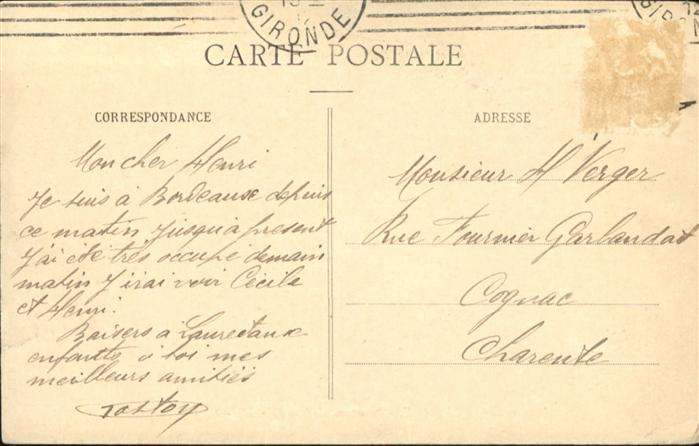 GIRONDE
CARTE POSTALE
CORRESPONDANCE
Mon cher Henri
Je suis à Bordeaux depuis
ce matin jusqu'à présent
j'ai été très occupé demain
matin j'irai voir Cécile
et Henri.
Baisers à Laure
enfants à toi mes
meilleurs amitiés
Gaston
ADRESSE
Monsieur H Verger
Rue Fournier Garlandat
Cognac
Charente